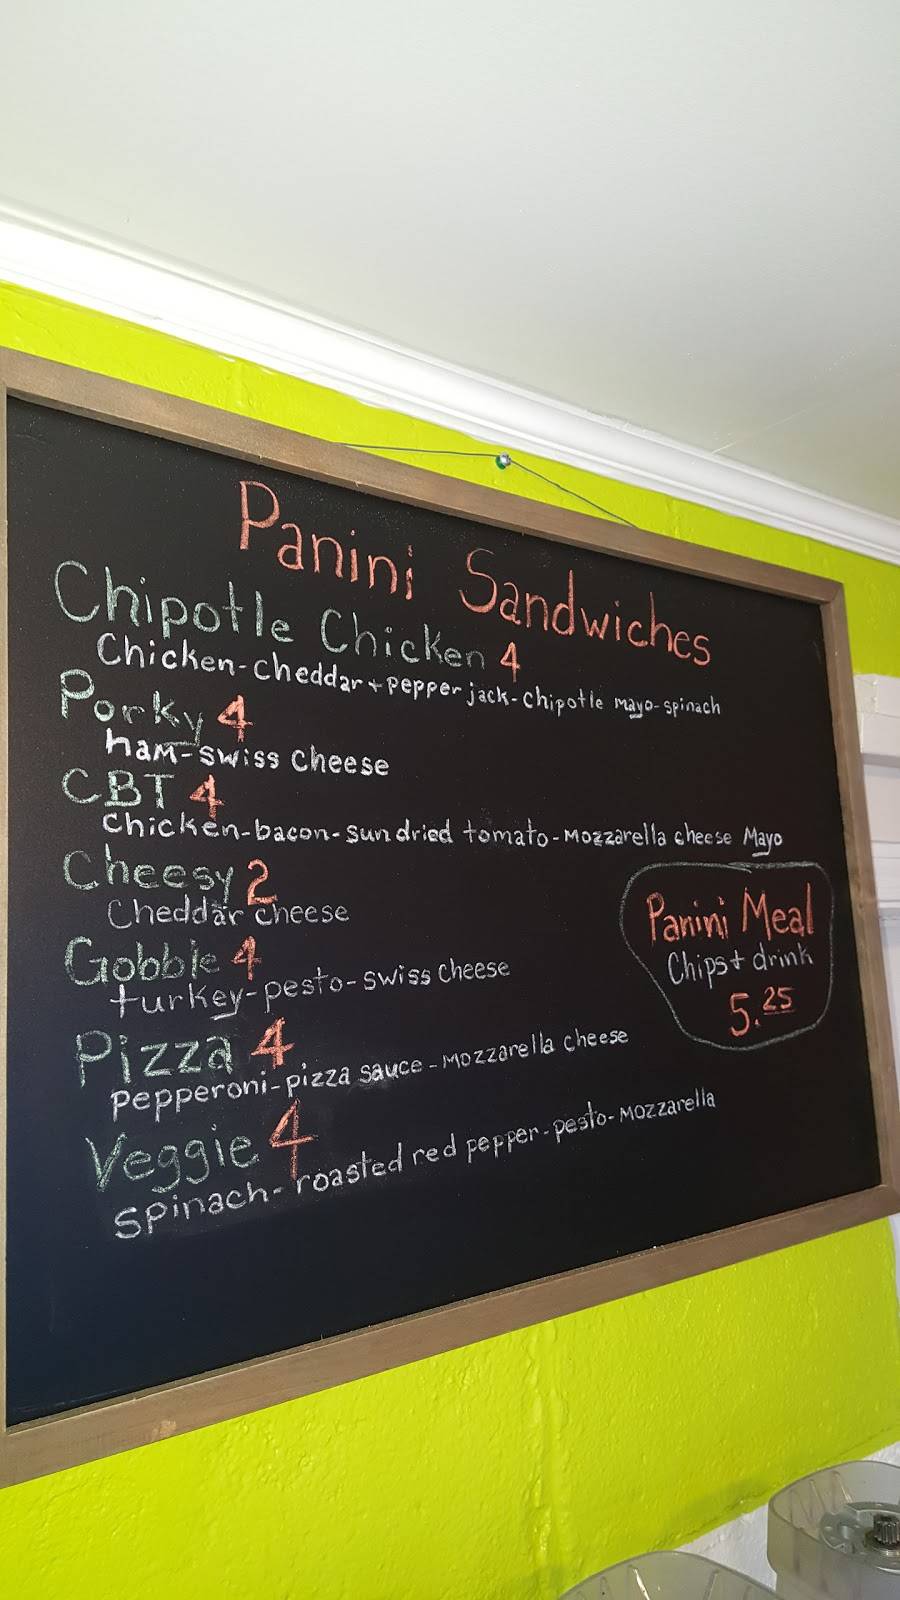 Panini Sandwiches
Chipotle Chicken 4
Chicken-cheddar+pepper jack-chipotle mayo-spinach
Porky 4
ham-swiss cheese
CBT 4
chicken-bacon-sundried tomato-mozzarella cheese Mayo
Cheesy 2
Cheddar cheese
Gobble 4
turkey-pesto-swiss cheese
Pizza 4
pepperoni-pizza sauce-mozzarella cheese
Veggie 4
spinach-roasted red pepper-pesto-mozzarella
Panini Meal
Chips+ drink
5.25